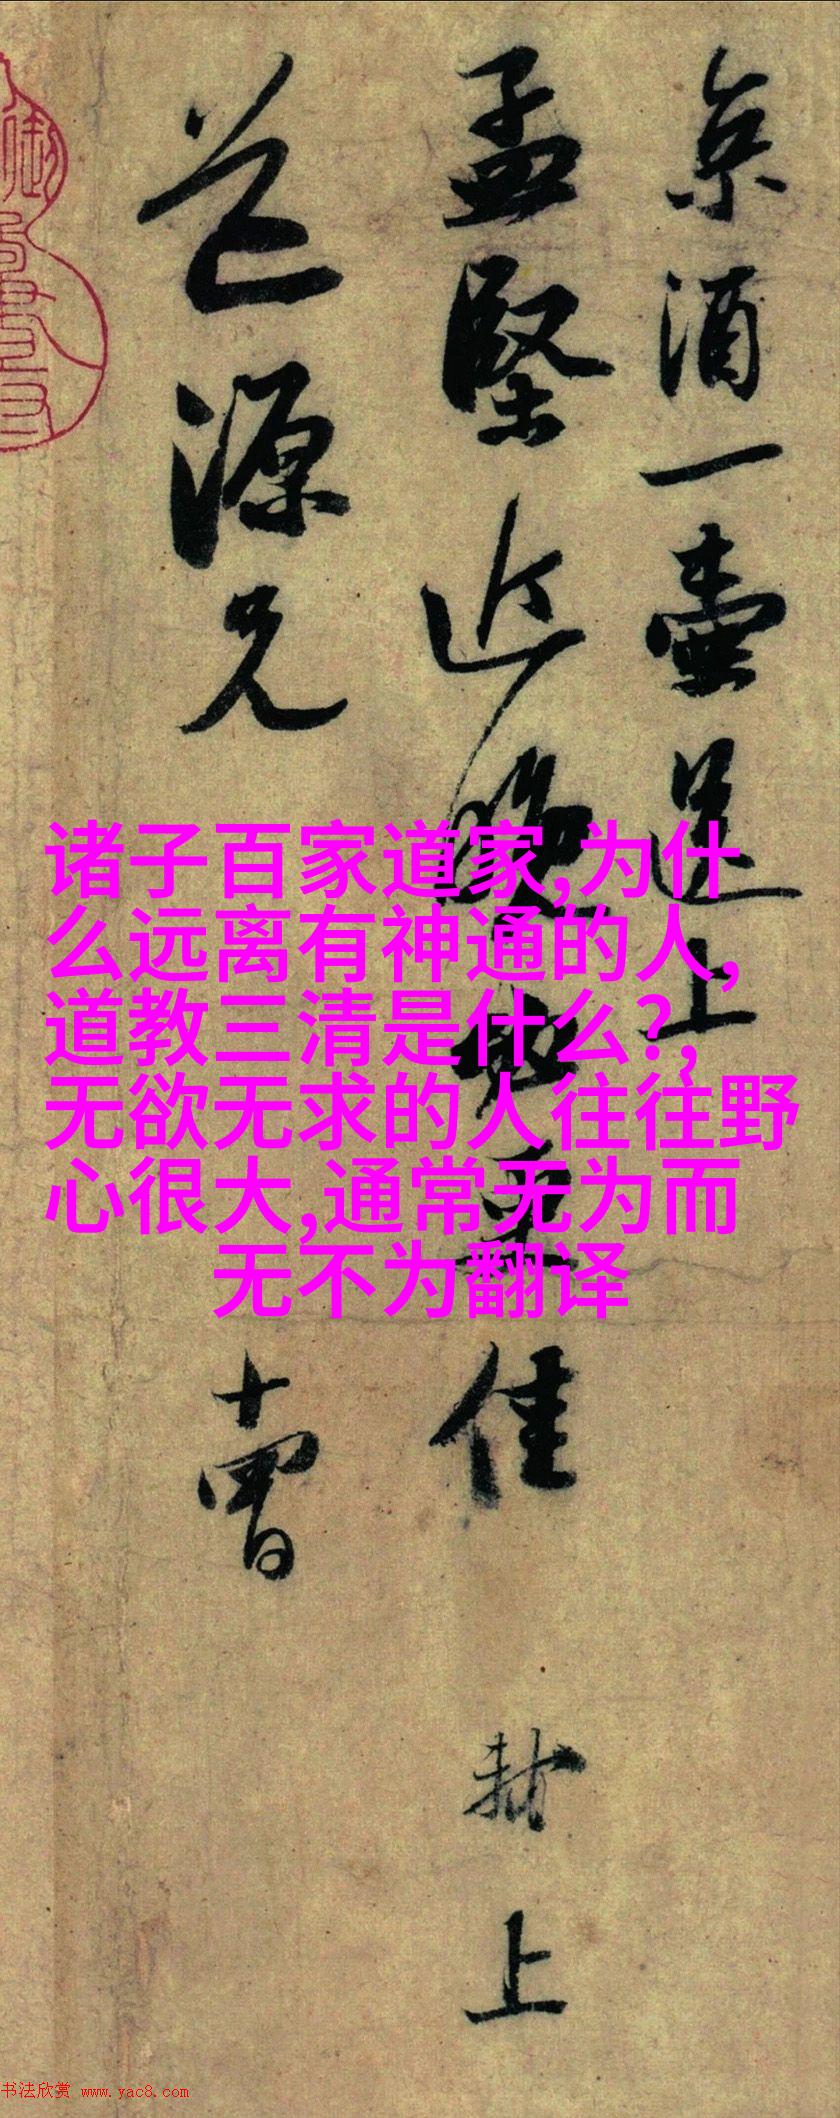 京酒一壶送上
孟坚近晚必重佳
道源兄
十曹
黻上
诸子百家道家,为什
么远离有神通的人,
道教三清是什么?,
无欲无求的人往往野
心很大,通常无为而
无不为翻译
书法欣赏 www.yac8.com